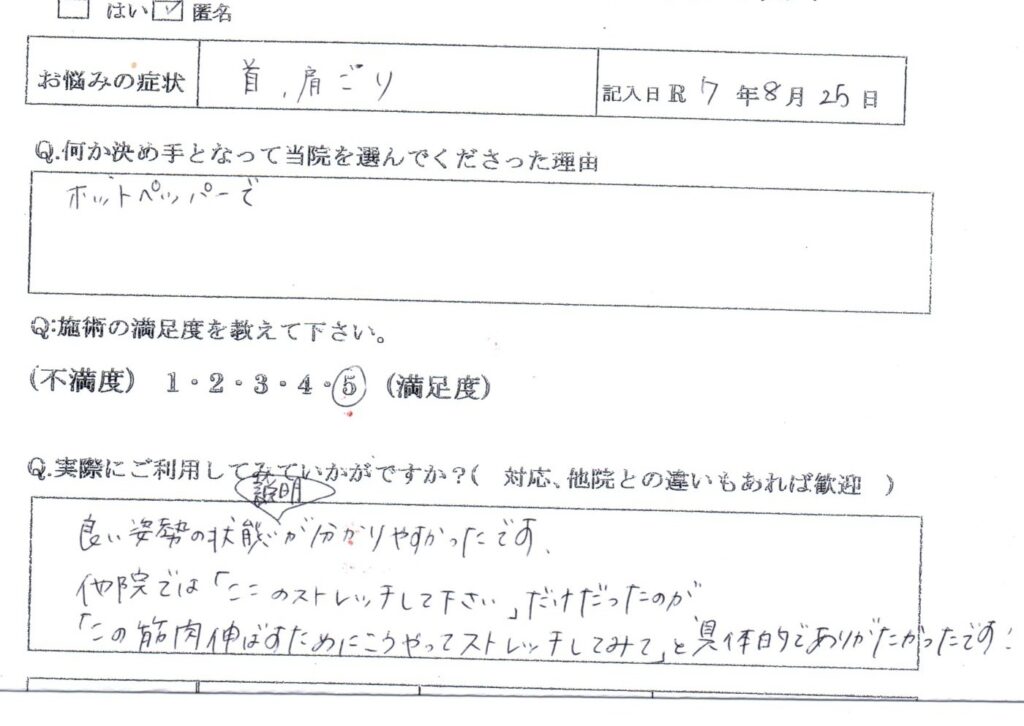 □ はい ☑ 匿名
お悩みの症状 首、肩ごり 記入日 R 7 年 8 月 25 日
Q.何か決め手となって当院を選んでくださった理由
ホットペッパーで
Q:施術の満足度を教えて下さい。
(不満度) 1・2・3・4・5 (満足度)
Q.実際にご利用してみていかがですか?( 対応、他院との違いもあれば歓迎 )
説明
良い姿勢の状態が分かりやすかったです、
他院では「ここのストレッチして下さい」だけだったのが
「この筋肉伸ばすためにこうやってストレッチしてみて」と具体的でありがたかったです!